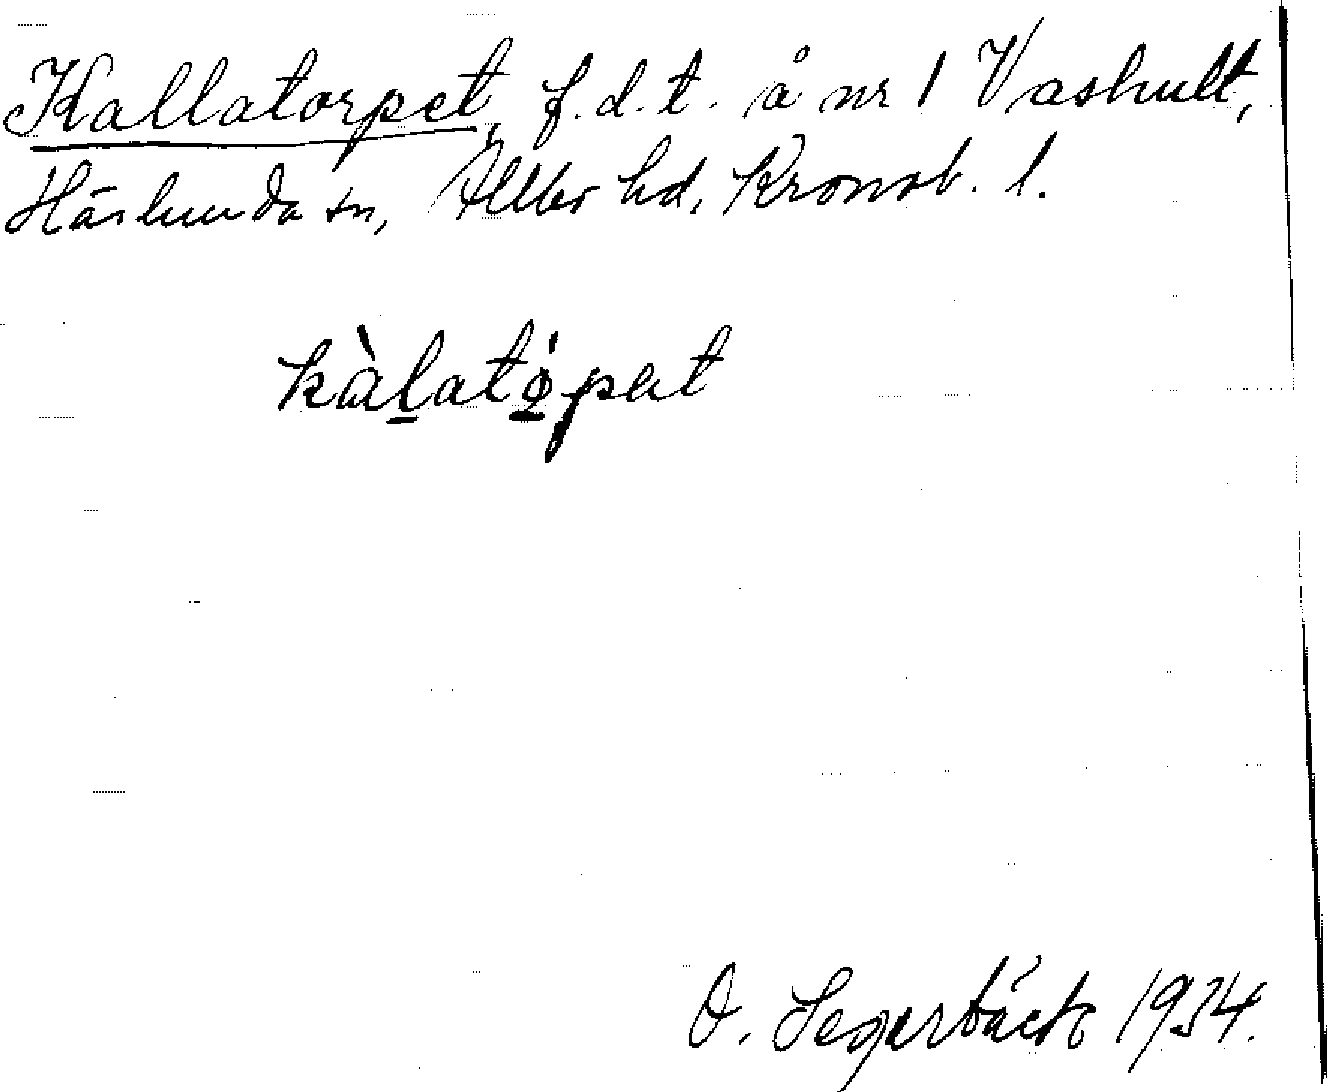 Kallatorpet, f.d.t. å nr 1 Vashult,
Härlunda sn, Allbo hd, Kronob. l.
kàlatópat
O. Segerbäck 1934.